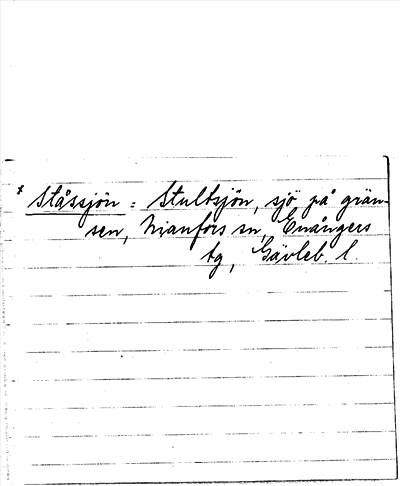 * Ståssjön = Stultsjön, sjö på grän-
sen, Nianfors sn, Enångers
tg, Gävleb. l.